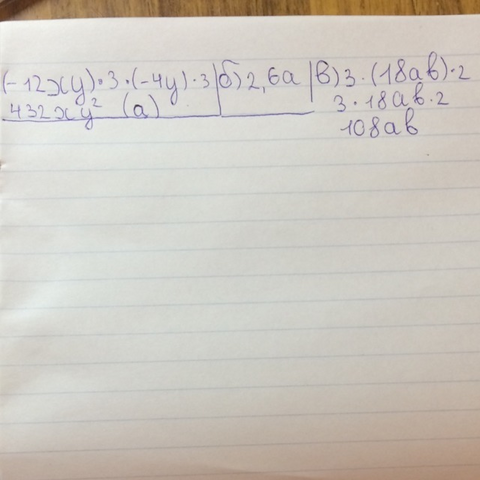 (-12xy)·3·(-4y)·3 | б) 2,6a | в) 3·(18ab)·2
432xy² (а) 3·18ab·2
108ab